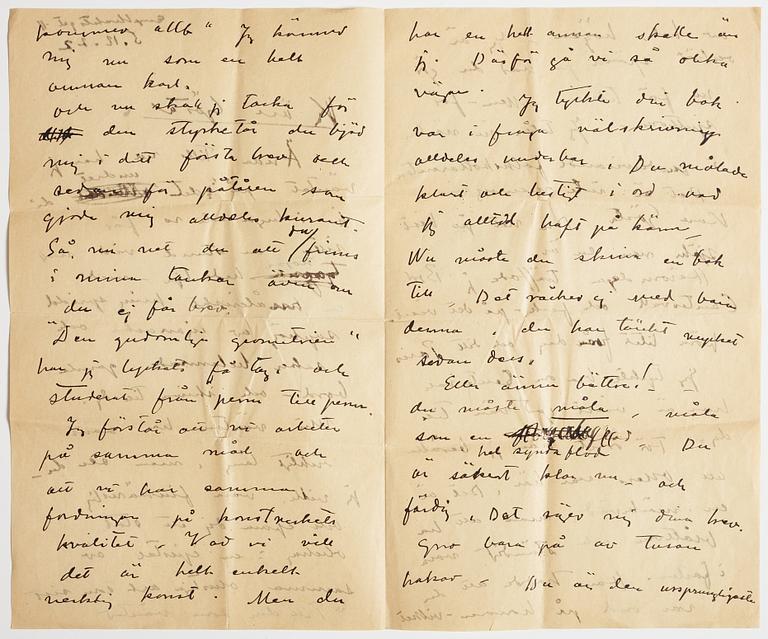 kommer allt" Jag känner
mig nu som en helt
annan karl.
och nu skall jag tacka för
den styrketår du bjöd
mig i ditt första brev och
sedan för påtåren som
gjorde mig alldeles kurant.
Så, nu vet du att du finns
i mina tankar även om
du ej får brev.
"Den gudomliga geometrien"
har jag lyckats få tag i och
studerat från perm till perm.
Jag förstår att vi arbetar
på samma mål och
att vi har samma
fordringar på konstverkets
kvalitet – Vad vi vill
det är helt enkelt
verklig konst. Men du
har en helt annan skalle än
jag. Därför gå vi så olika
vägar. Jag tyckte din bok
var i fråga välskrivning
alldeles underbar, Du målade
klart och tydligt i ord vad
jag alltid haft på känn,
Nu måste du skriva en bok
till. Det räcker ej med bara
denna, du har tänkt mycket
sedan dess.
Eller ännu bättre! –
du måste måla, måla
som en
hel syndaflod Du
är säkert klar nu – och
färdig, Det säger mig dina brev.
Gno bara på av tusan
hakar – Du är den ursprungligaste